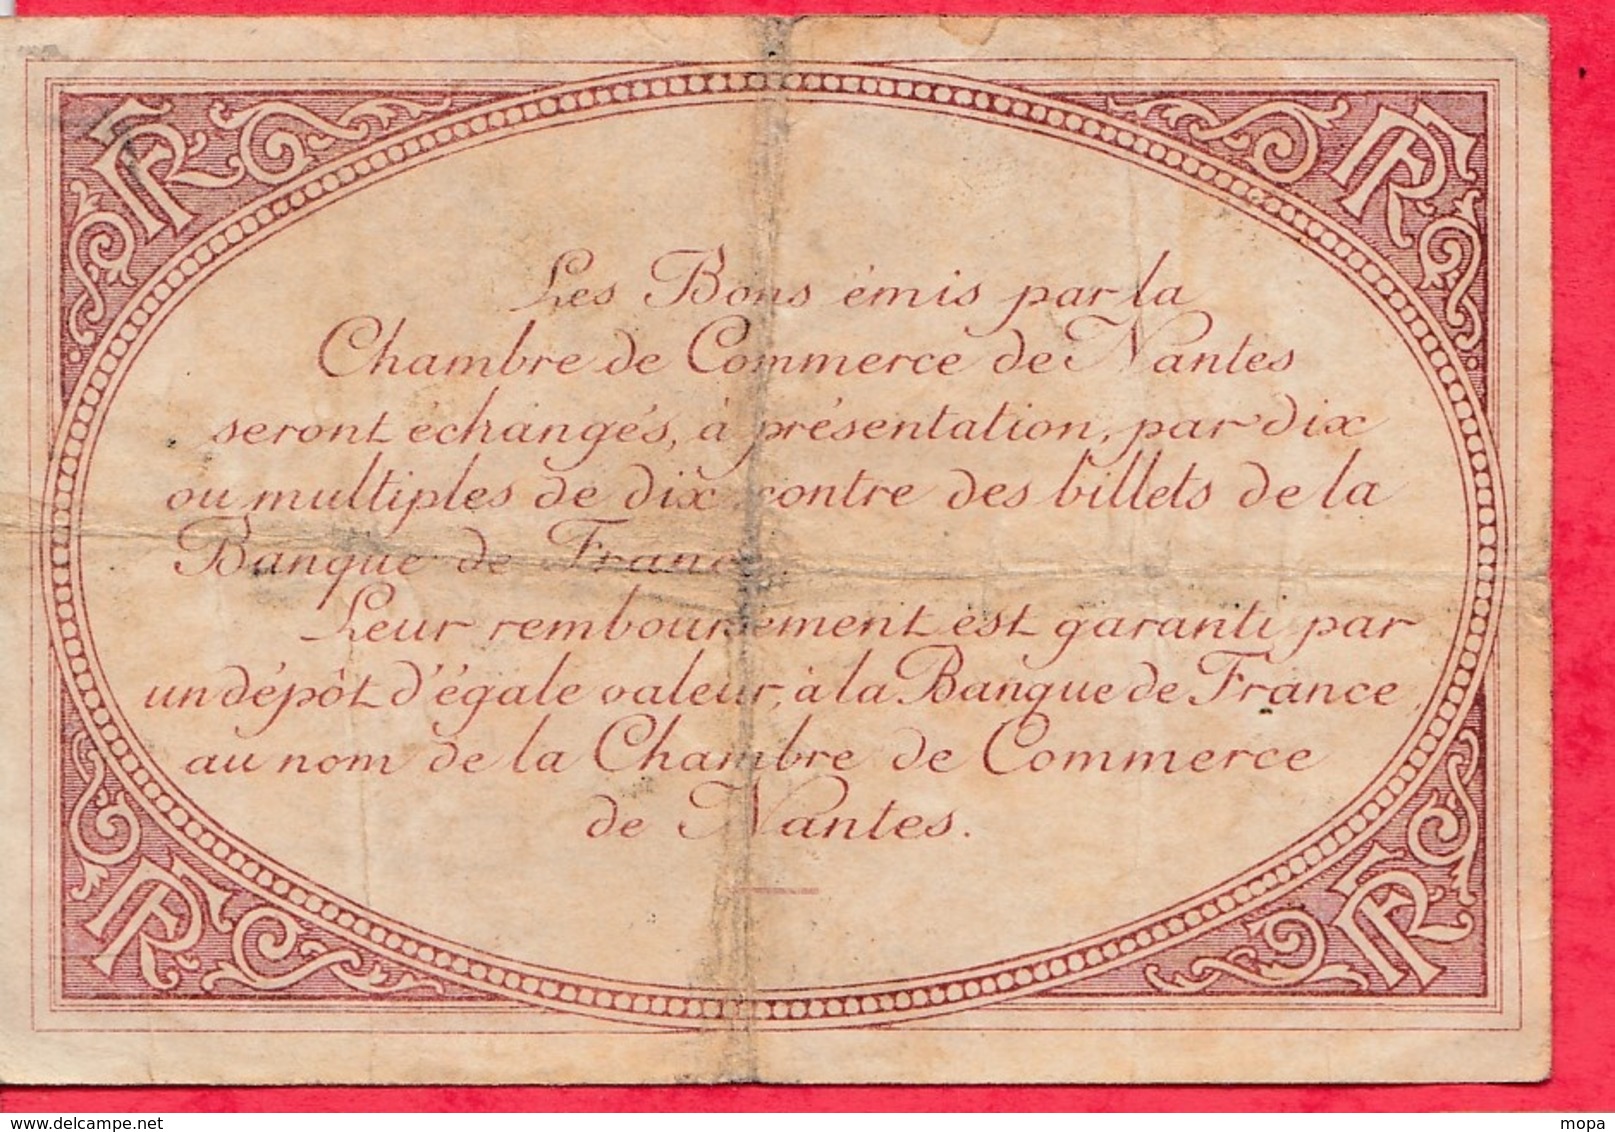 Les Bons émis par la
Chambre de Commerce de Nantes
seront échangés, à présentation, par dix
ou multiples de dix contre des billets de la
Banque de France.
Leur remboursement est garanti par
un dépôt d'égale valeur, à la Banque de France,
au nom de la Chambre de Commerce
de Nantes.
RF
RF
RF
RF
www.delcampe.net
mopa